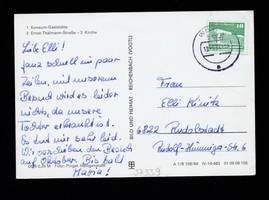 1 Konsum-Gaststätte
2 Ernst-Thälmann-Straße - 3 Kirche
Liebe Elli!
Ganz schnell ein paar
Zeilen, mit unserem
Besuch wird es leider
nichts, da unsere
Tochter erkrankt ist.
Es tut mir sehr leid.
Wir verschieben den Besuch
auf Oktober. Bis bald
Maria!
Foto: Pringel, Heiligenstadt
BILD UND HEIMAT · REICHENBACH (VOGTL)
10
Frau
Elli Kinitz
6822 Rudolstadt
A 1/B 106/84 IV-14-483 01 09 08 100
27339